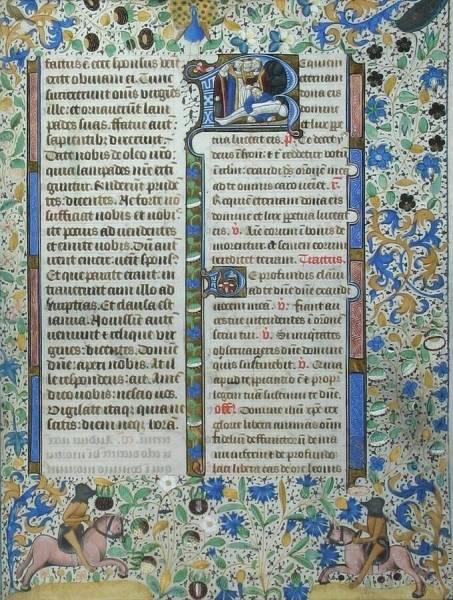 factus e ecce sponsus venit
exite obviam ei Tunc
surrexerunt omnes virgines
ille: et ornaverunt lam
pades suas. fatue aut:
sapientibus dixerunt.
Date nobis de oleo vestro
quia lampades nre exti
guntur. Responderunt prude
tes dicentes. Ne forte no
sufficiat nobis et vobis
ite potius ad vendentes
et emite vobis. Dum aut
irent emere: venit spons9
Et que parate erant: in
traverunt cum illo ad
nuptias. Et clausa est
ianua. Novissime autem
veniunt et relique virgi
gines: dicentes. Domine
dne: aperi nobis. At il
le respondens: ait. Amen
dico vobis: nescio vos.
Vigilate itaqz: quia nes
citis: diem neqz hora.
Requiem
eternam
dona eis
domine
et lux per
tua luceat eis. ps. Te decet
deus in syon: et tibi reddetur votum
in ierlm: exaudi oronem mea
ad te omnis caro veniet. R.
Requiem eternam dona eis
domine et lux perpetua luceat
eis. V. Anime eorum in bonis de
morentur et semen eorum
hereditet terram. Tractus.
De profundis clamavi
ad te domine dne exaudi
vocem mea. V. fiant aures
tue intendentes in oronem
servi tui. V. Si iniquitates
observaveris dne domine
quis sustinebit. V. Quia
apud te propiciatio e et propter
legem tuam sustinui te dne.
Off. Domine ihu xpe rex
glorie libera animas omni
fidelium defunctorum de manu
inferni et de profundo
lacu libera eas de ore leonis